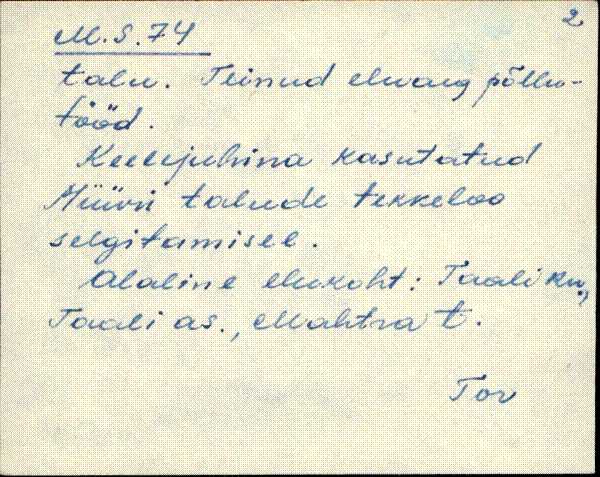 2
M.S.74
talu. Teinud eluaeg põllu-
tööd.
Keelejuhina kasutatud
Müüri talude tekkeloo
selgitamisel.
Alaline elukoht: Taali kn.,
Taali as., Mahtra t.
Tor